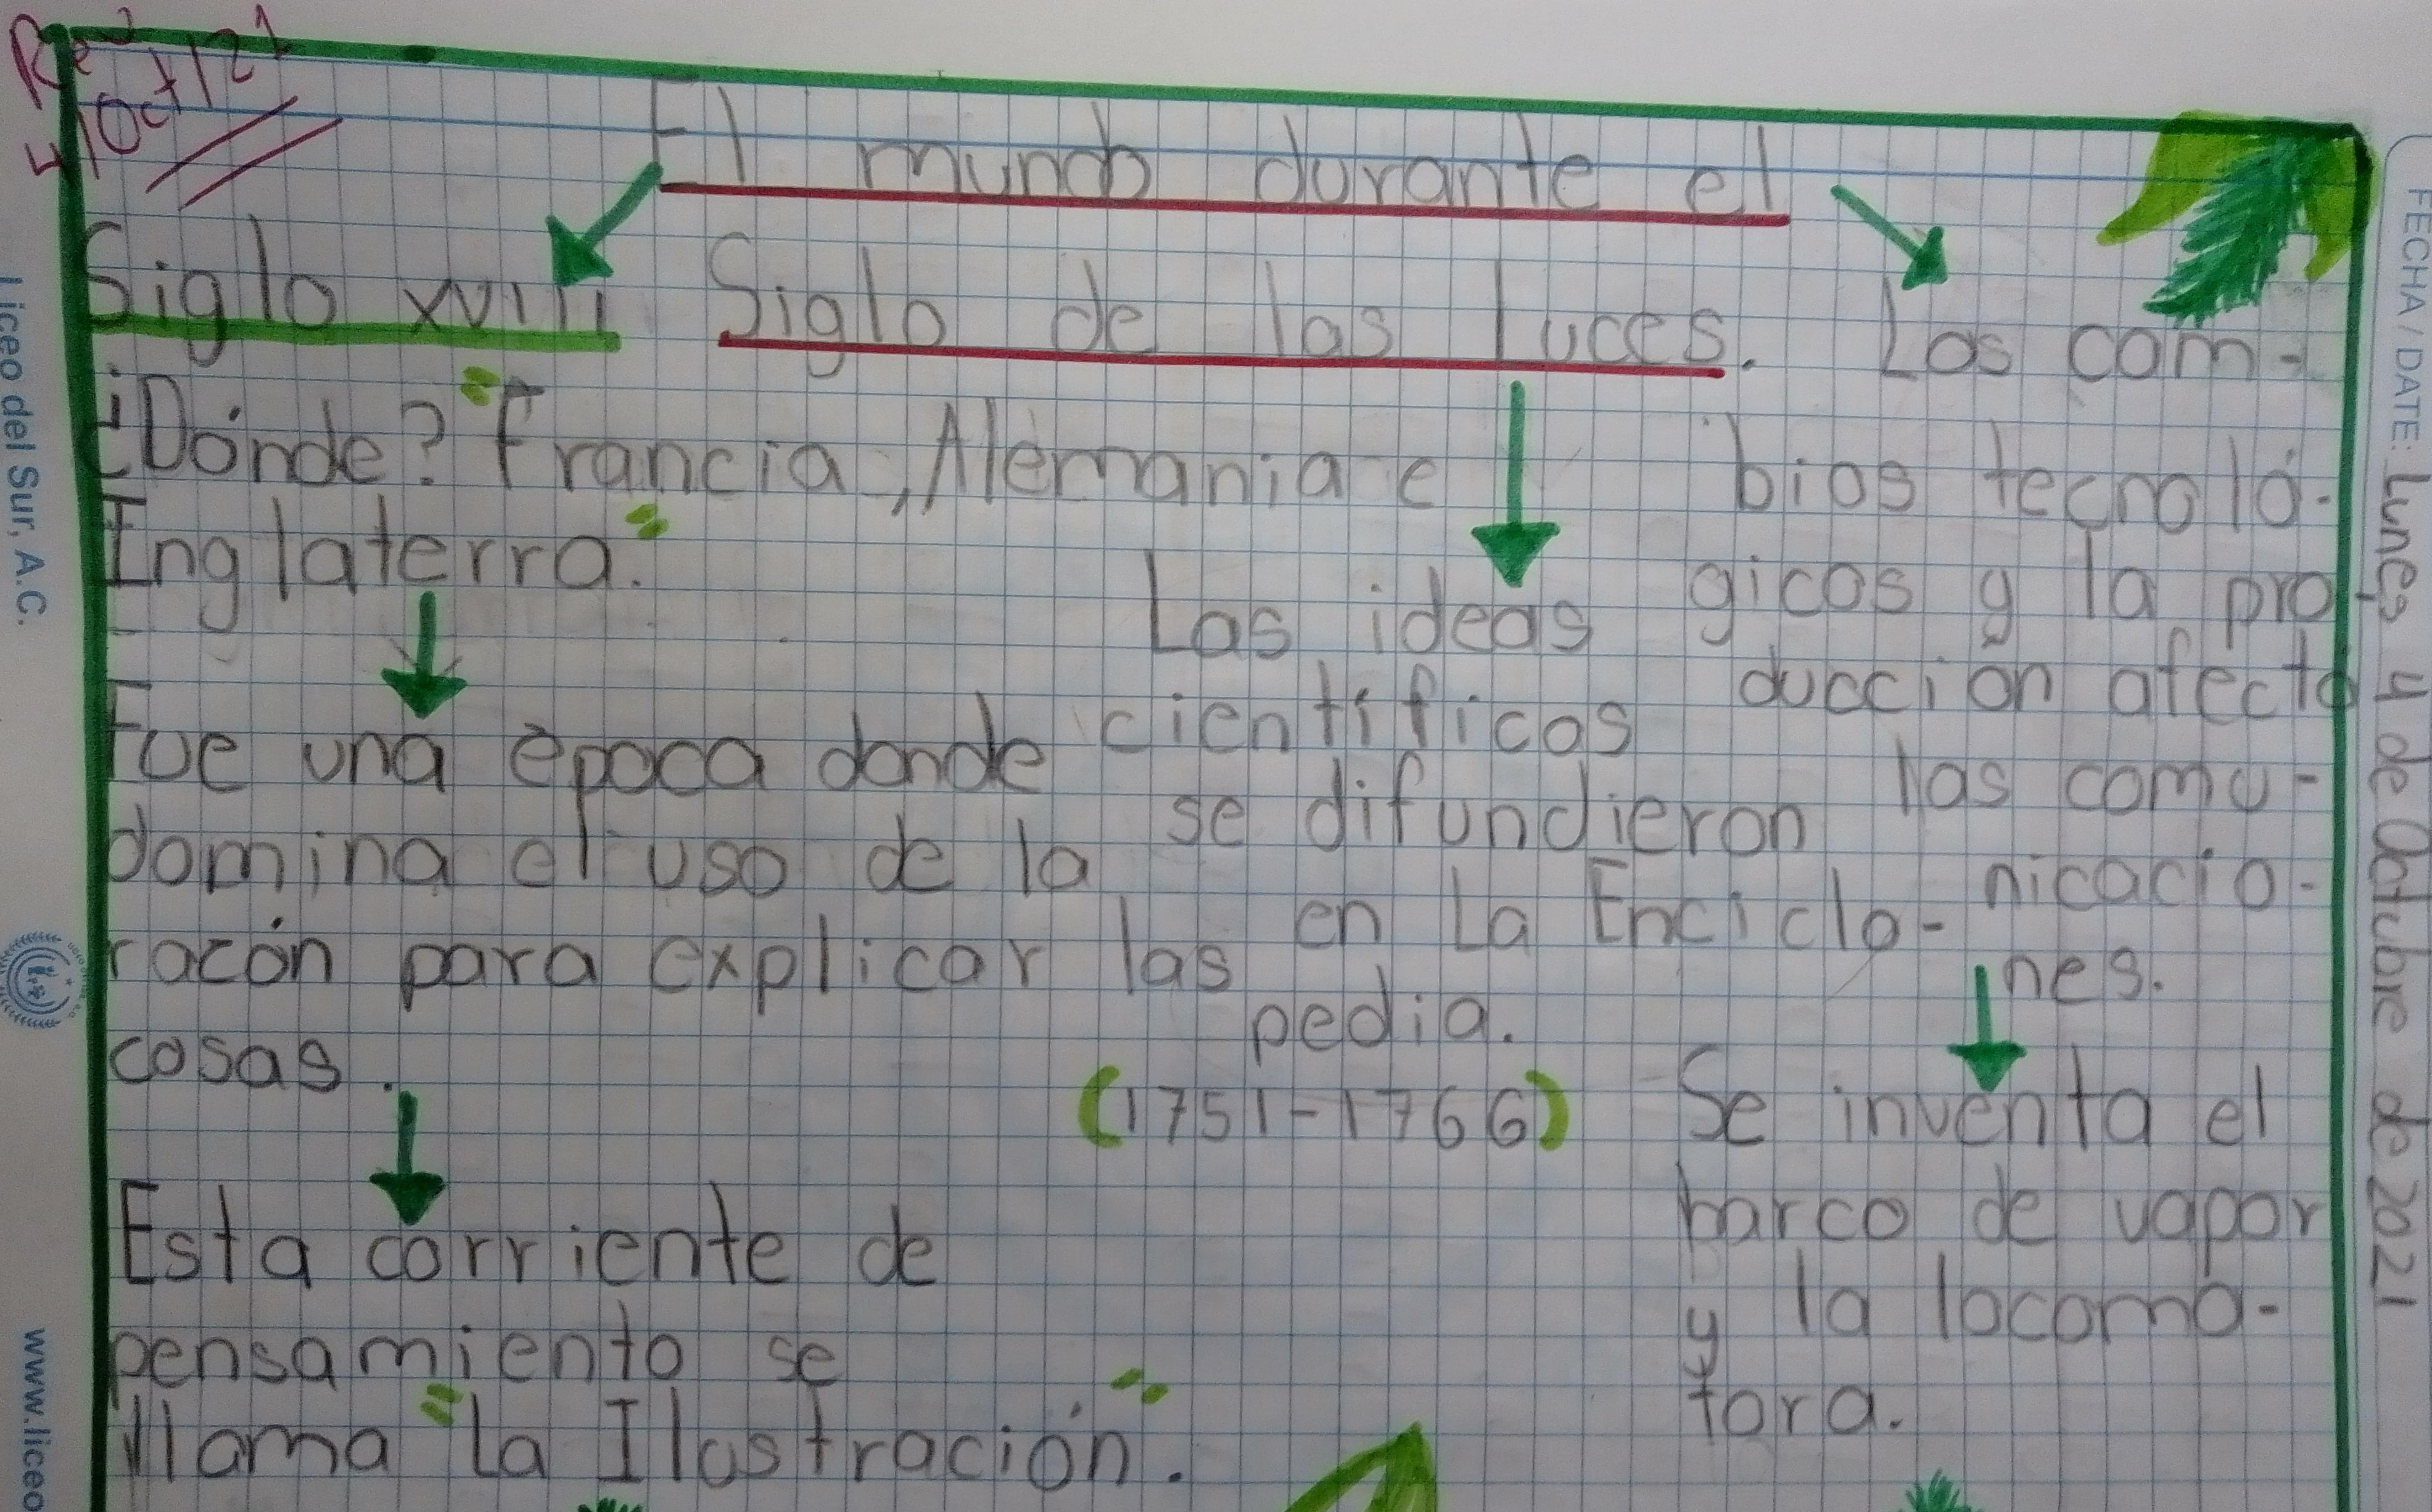 Rev
4/Oct/21
El mundo durante el
Siglo de las luces.
Siglo XVIII
¿Dónde? "Francia, Alemania e
Inglaterra."
Fue una epoca donde
domina el uso de la
racón para explicar las
cosas.
Esta corriente de
pensamiento se
llama "La Ilustración".
Las ideas
científicas
se difundieron
en La Enciclo-
pedia.
(1751-1766)
Los cam-
bios tecnoló-
gicos y la pro-
ducción afectó
las comu-
nicacio-
nes.
Se inventa el
barco de vapor
y la locomo-
tora.
FECHA / DATE: Lunes 4 de Octubre de 2021
Liceo del Sur, A.C.
www.liceo